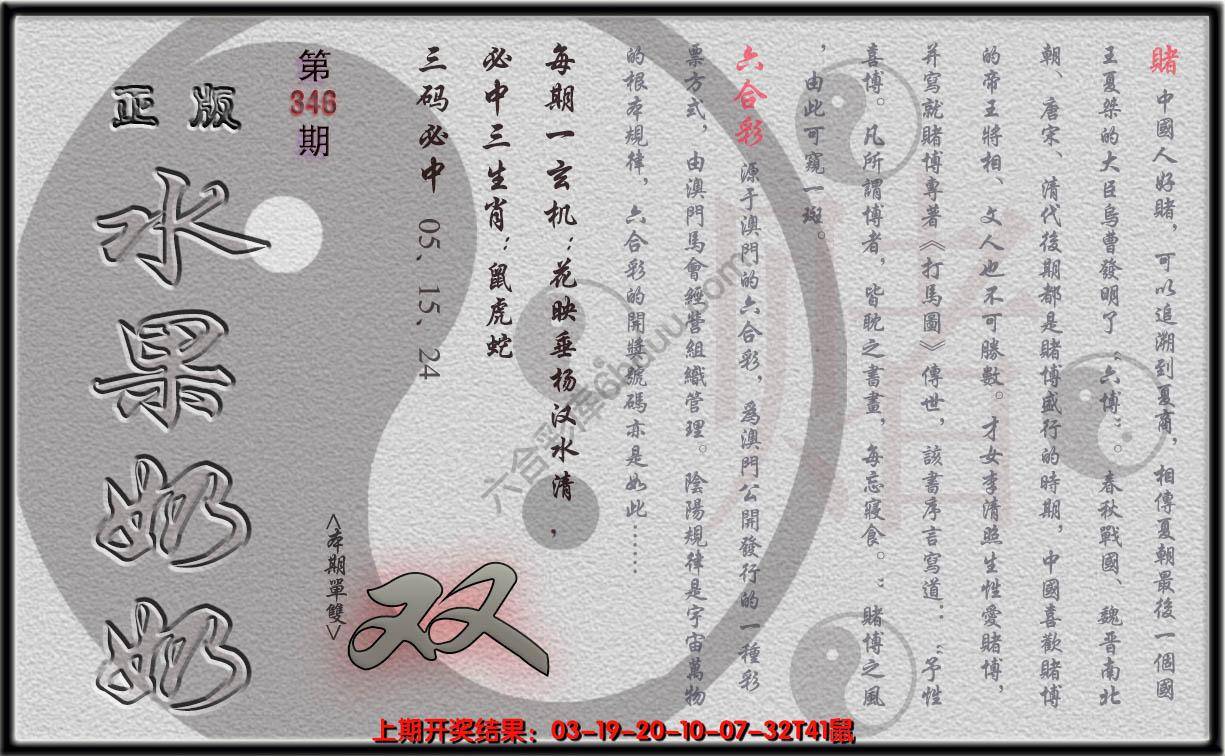 賭 中國人好賭，可以追溯到夏商，相傳夏朝最後一個國
王夏桀的大臣烏曹發明了“六博”。春秋戰國、魏晋南北
朝、唐宋、清代後期都是賭博盛行的時期，中國喜歡賭博
的帝王將相、文人也不可勝數。才女李清照生性愛賭博，
并寫就賭博專著《打馬圖》傳世，該書序言寫道：“予性
喜博。凡所謂博者，皆耽之書畫，每忘寢食。”賭博之風
，由此可窺一斑。
六合彩 源于澳門的六合彩，爲澳門公開發行的一種彩
票方式，由澳門馬會經營組織管理。陰陽規律是宇宙萬物
的根本規律，六合彩的開獎號碼亦是如此……
每期一玄机：花映垂杨汉水清，
必中三生肖：鼠虎蛇
三码必中 05、15、24
<本期單雙>
双
第346期
正版
水果奶奶
上期开奖结果：03-19-20-10-07-32T41鼠
賭
六合彩库6huuu.com